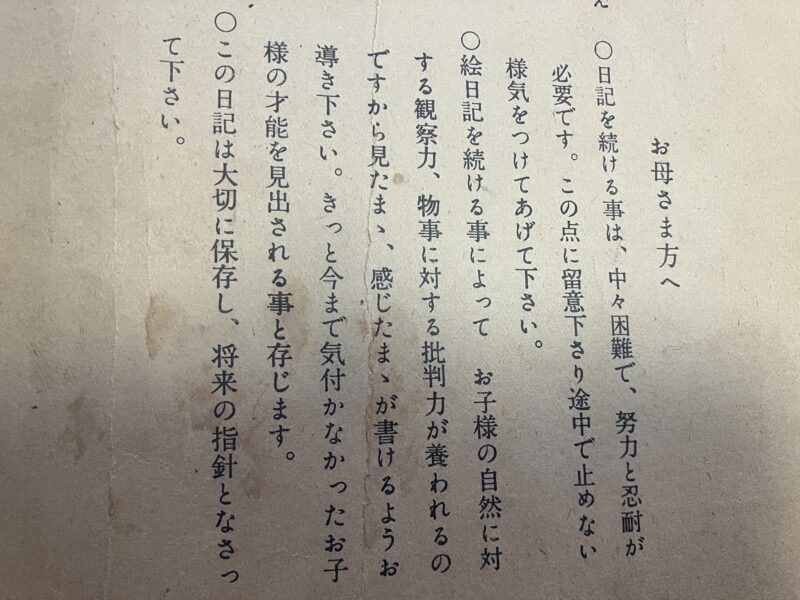 え
お母さま方へ
○日記を続ける事は、中々困難で、努力と忍耐が
必要です。この点に留意下さり途中で止めない
様気をつけてあげて下さい。
○絵日記を続ける事によって　お子様の自然に対
する観察力、物事に対する批判力が養われるの
ですから見たまゝ、感じたまゝが書けるようお
導き下さい。きっと今まで気付かなかったお子
様の才能を見出される事と存じます。
○この日記は大切に保存し、将来の指針となさっ
て下さい。